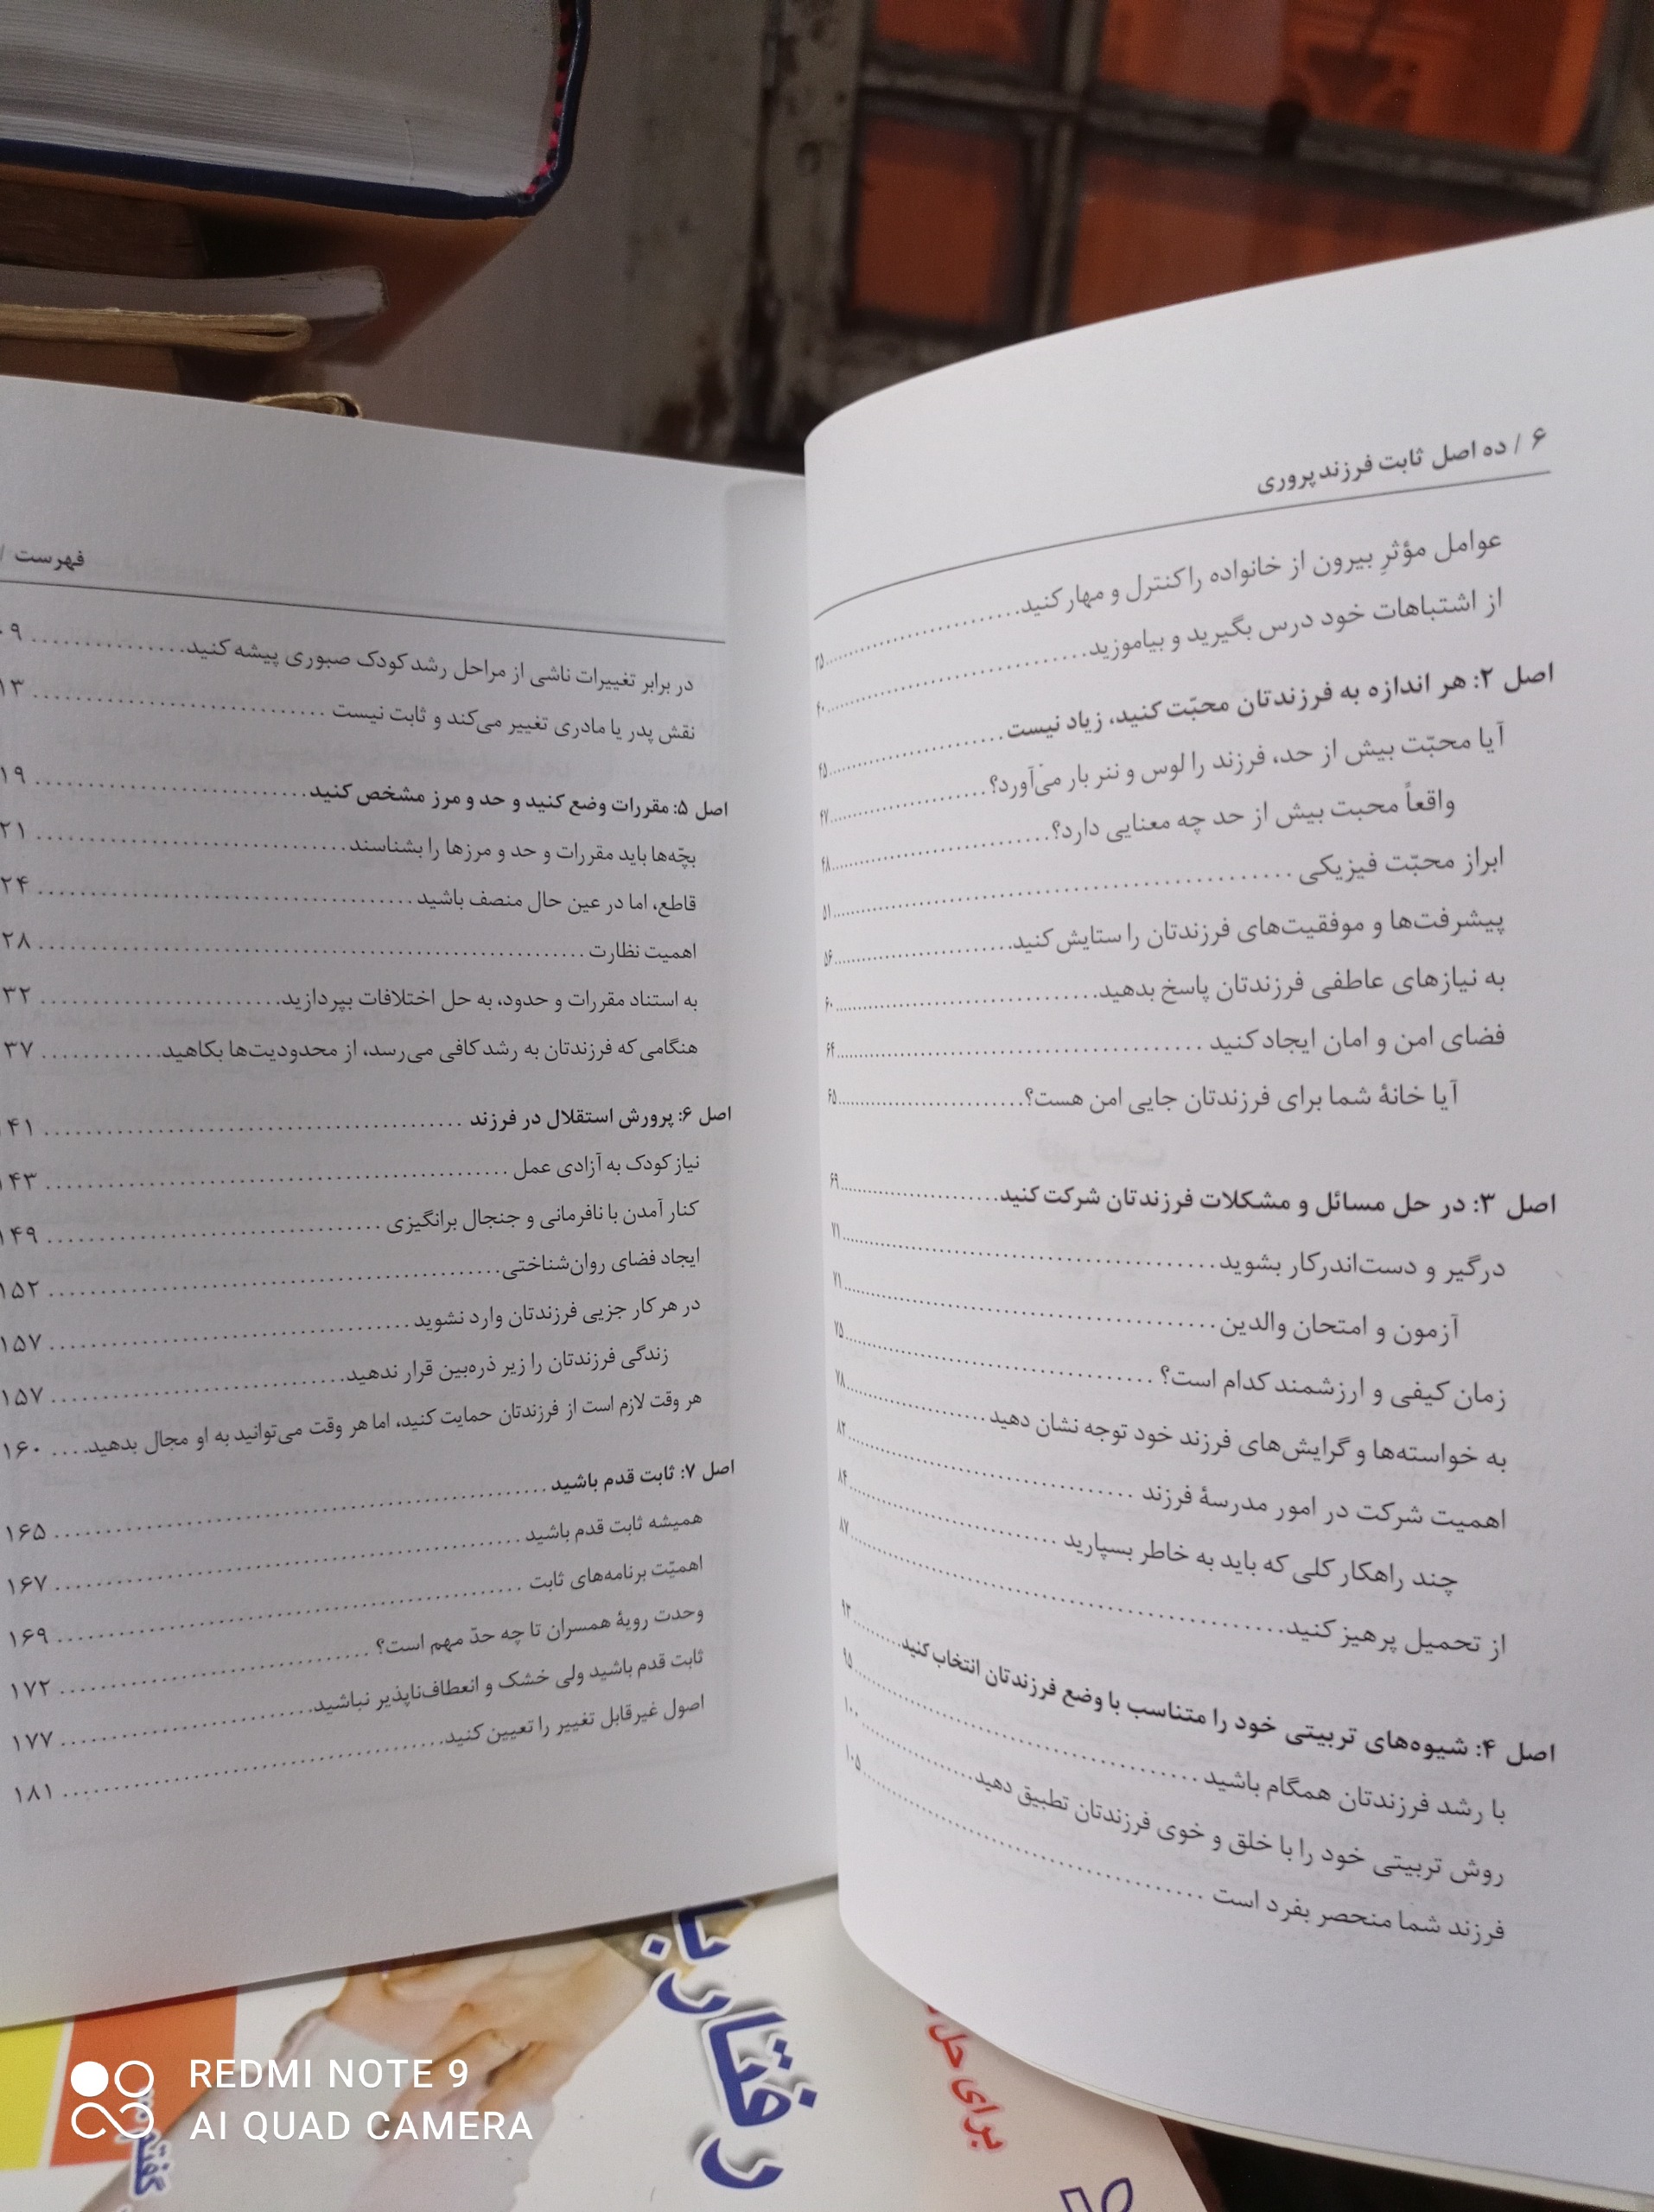 ۶ / ده اصل ثابت فرزندپروری
عوامل مؤثرِ بیرون از خانواده را کنترل و مهار کنید....................۳۵
از اشتباهات خود درس بگیرید و بیاموزید....................۴۰
اصل ۲: هر اندازه به فرزندتان محبّت کنید، زیاد نیست....................۴۵
آیا محبّت بیش از حد، فرزند را لوس و ننر بار می‌آورد؟....................۴۷
واقعاً محبت بیش از حد چه معنایی دارد؟....................۴۸
ابراز محبّت فیزیکی....................۵۱
پیشرفت‌ها و موفقیت‌های فرزندتان را ستایش کنید....................۵۶
به نیازهای عاطفی فرزندتان پاسخ بدهید....................۶۰
فضای امن و امان ایجاد کنید....................۶۴
آیا خانهٔ شما برای فرزندتان جایی امن هست؟....................۶۵
اصل ۳: در حل مسائل و مشکلات فرزندتان شرکت کنید....................۶۹
درگیر و دست‌اندرکار بشوید....................۷۱
آزمون و امتحان والدین....................۷۱
زمان کیفی و ارزشمند کدام است؟....................۷۵
به خواسته‌ها و گرایش‌های فرزند خود توجه نشان دهید....................۷۸
اهمیت شرکت در امور مدرسهٔ فرزند....................۸۲
چند راهکار کلی که باید به خاطر بسپارید....................۸۴
از تحمیل پرهیز کنید....................۸۷
اصل ۴: شیوه‌های تربیتی خود را متناسب با وضع فرزندتان انتخاب کنید..........۹۳
با رشد فرزندتان همگام باشید....................۹۵
روش تربیتی خود را با خلق و خوی فرزندتان تطبیق دهید....................۱۰۰
فرزند شما منحصر بفرد است....................۱۰۵
فهرست /
در برابر تغییرات ناشی از مراحل رشد کودک صبوری پیشه کنید....................۰۹
نقش پدر یا مادری تغییر می‌کند و ثابت نیست....................۱۳
اصل ۵: مقررات وضع کنید و حد و مرز مشخص کنید....................۱۹
بچّه‌ها باید مقررات و حد و مرزها را بشناسند....................۲۱
قاطع، اما در عین حال منصف باشید....................۲۴
اهمیت نظارت....................۲۸
به استناد مقررات و حدود، به حل اختلافات بپردازید....................۳۲
هنگامی که فرزندتان به رشد کافی می‌رسد، از محدودیت‌ها بکاهید............۳۷
اصل ۶: پرورش استقلال در فرزند....................۱۴۱
نیاز کودک به آزادی عمل....................۱۴۳
کنار آمدن با نافرمانی و جنجال برانگیزی....................۱۴۹
ایجاد فضای روان‌شناختی....................۱۵۲
در هر کار جزیی فرزندتان وارد نشوید....................۱۵۷
زندگی فرزندتان را زیر ذره‌بین قرار ندهید....................۱۵۷
هر وقت لازم است از فرزندتان حمایت کنید، اما هر وقت می‌توانید به او مجال بدهید....۱۶۰
اصل ۷: ثابت قدم باشید....................۱۶۵
همیشه ثابت قدم باشید....................۱۶۷
اهمیّت برنامه‌های ثابت....................۱۶۹
وحدت رویهٔ همسران تا چه حدّ مهم است؟....................۱۷۲
ثابت قدم باشید ولی خشک و انعطاف‌ناپذیر نباشید....................۱۷۷
اصول غیرقابل تغییر را تعیین کنید....................۱۸۱
رفتار با
برای حل
REDMI NOTE 9
AI QUAD CAMERA